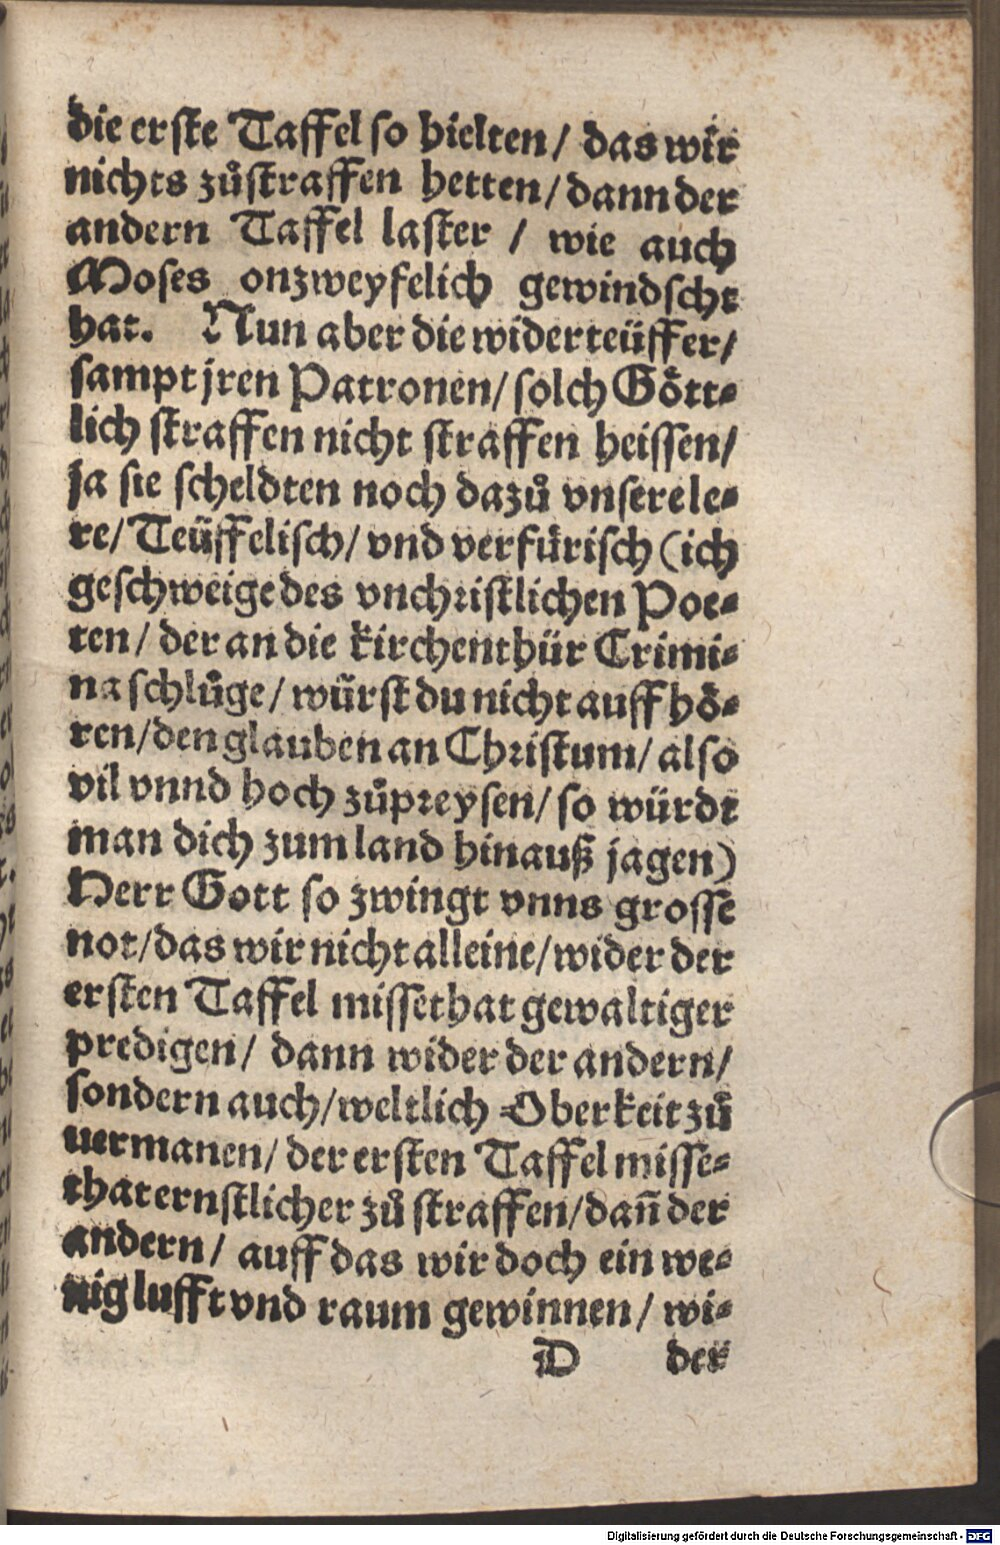 die erste Taffel so hielten/ das wir
nichts zůstraffen hetten/ dann der
andern Taffel laster / wie auch
Moses onzweyfelich gewindscht
hat. Nun aber die widerteüffer/
sampt jren Patronen/ solch Gött⸗
lich straffen nicht straffen heissen/
ja sie scheldten noch dazů vnsere le⸗
re/ Teüffelisch/ vnd verfürisch (ich
geschweige des vnchristlichen Poe⸗
ten/ der an die kirchenthür Crimi⸗
na schlůge/ würst du nicht auff hö⸗
ren/ den glauben an Christum/ also
vil vnnd hoch zůpreysen/ so würdt
man dich zum land hinauß jagen)
Herr Gott so zwingt vnns grosse
not/ das wir nicht alleine/ wider der
ersten Taffel missethat gewaltiger
predigen/ dann wider der andern/
sondern auch/ weltlich Oberkeit zů
uermanen/ der ersten Taffel misse⸗
that ernstlicher zů straffen/ dañ der
andern/ auff das wir doch ein we⸗
nig lufft vnd raum gewinnen/ wi⸗
D der
Digitalisierung gefördert durch die Deutsche Forschungsgemeinschaft - DFG